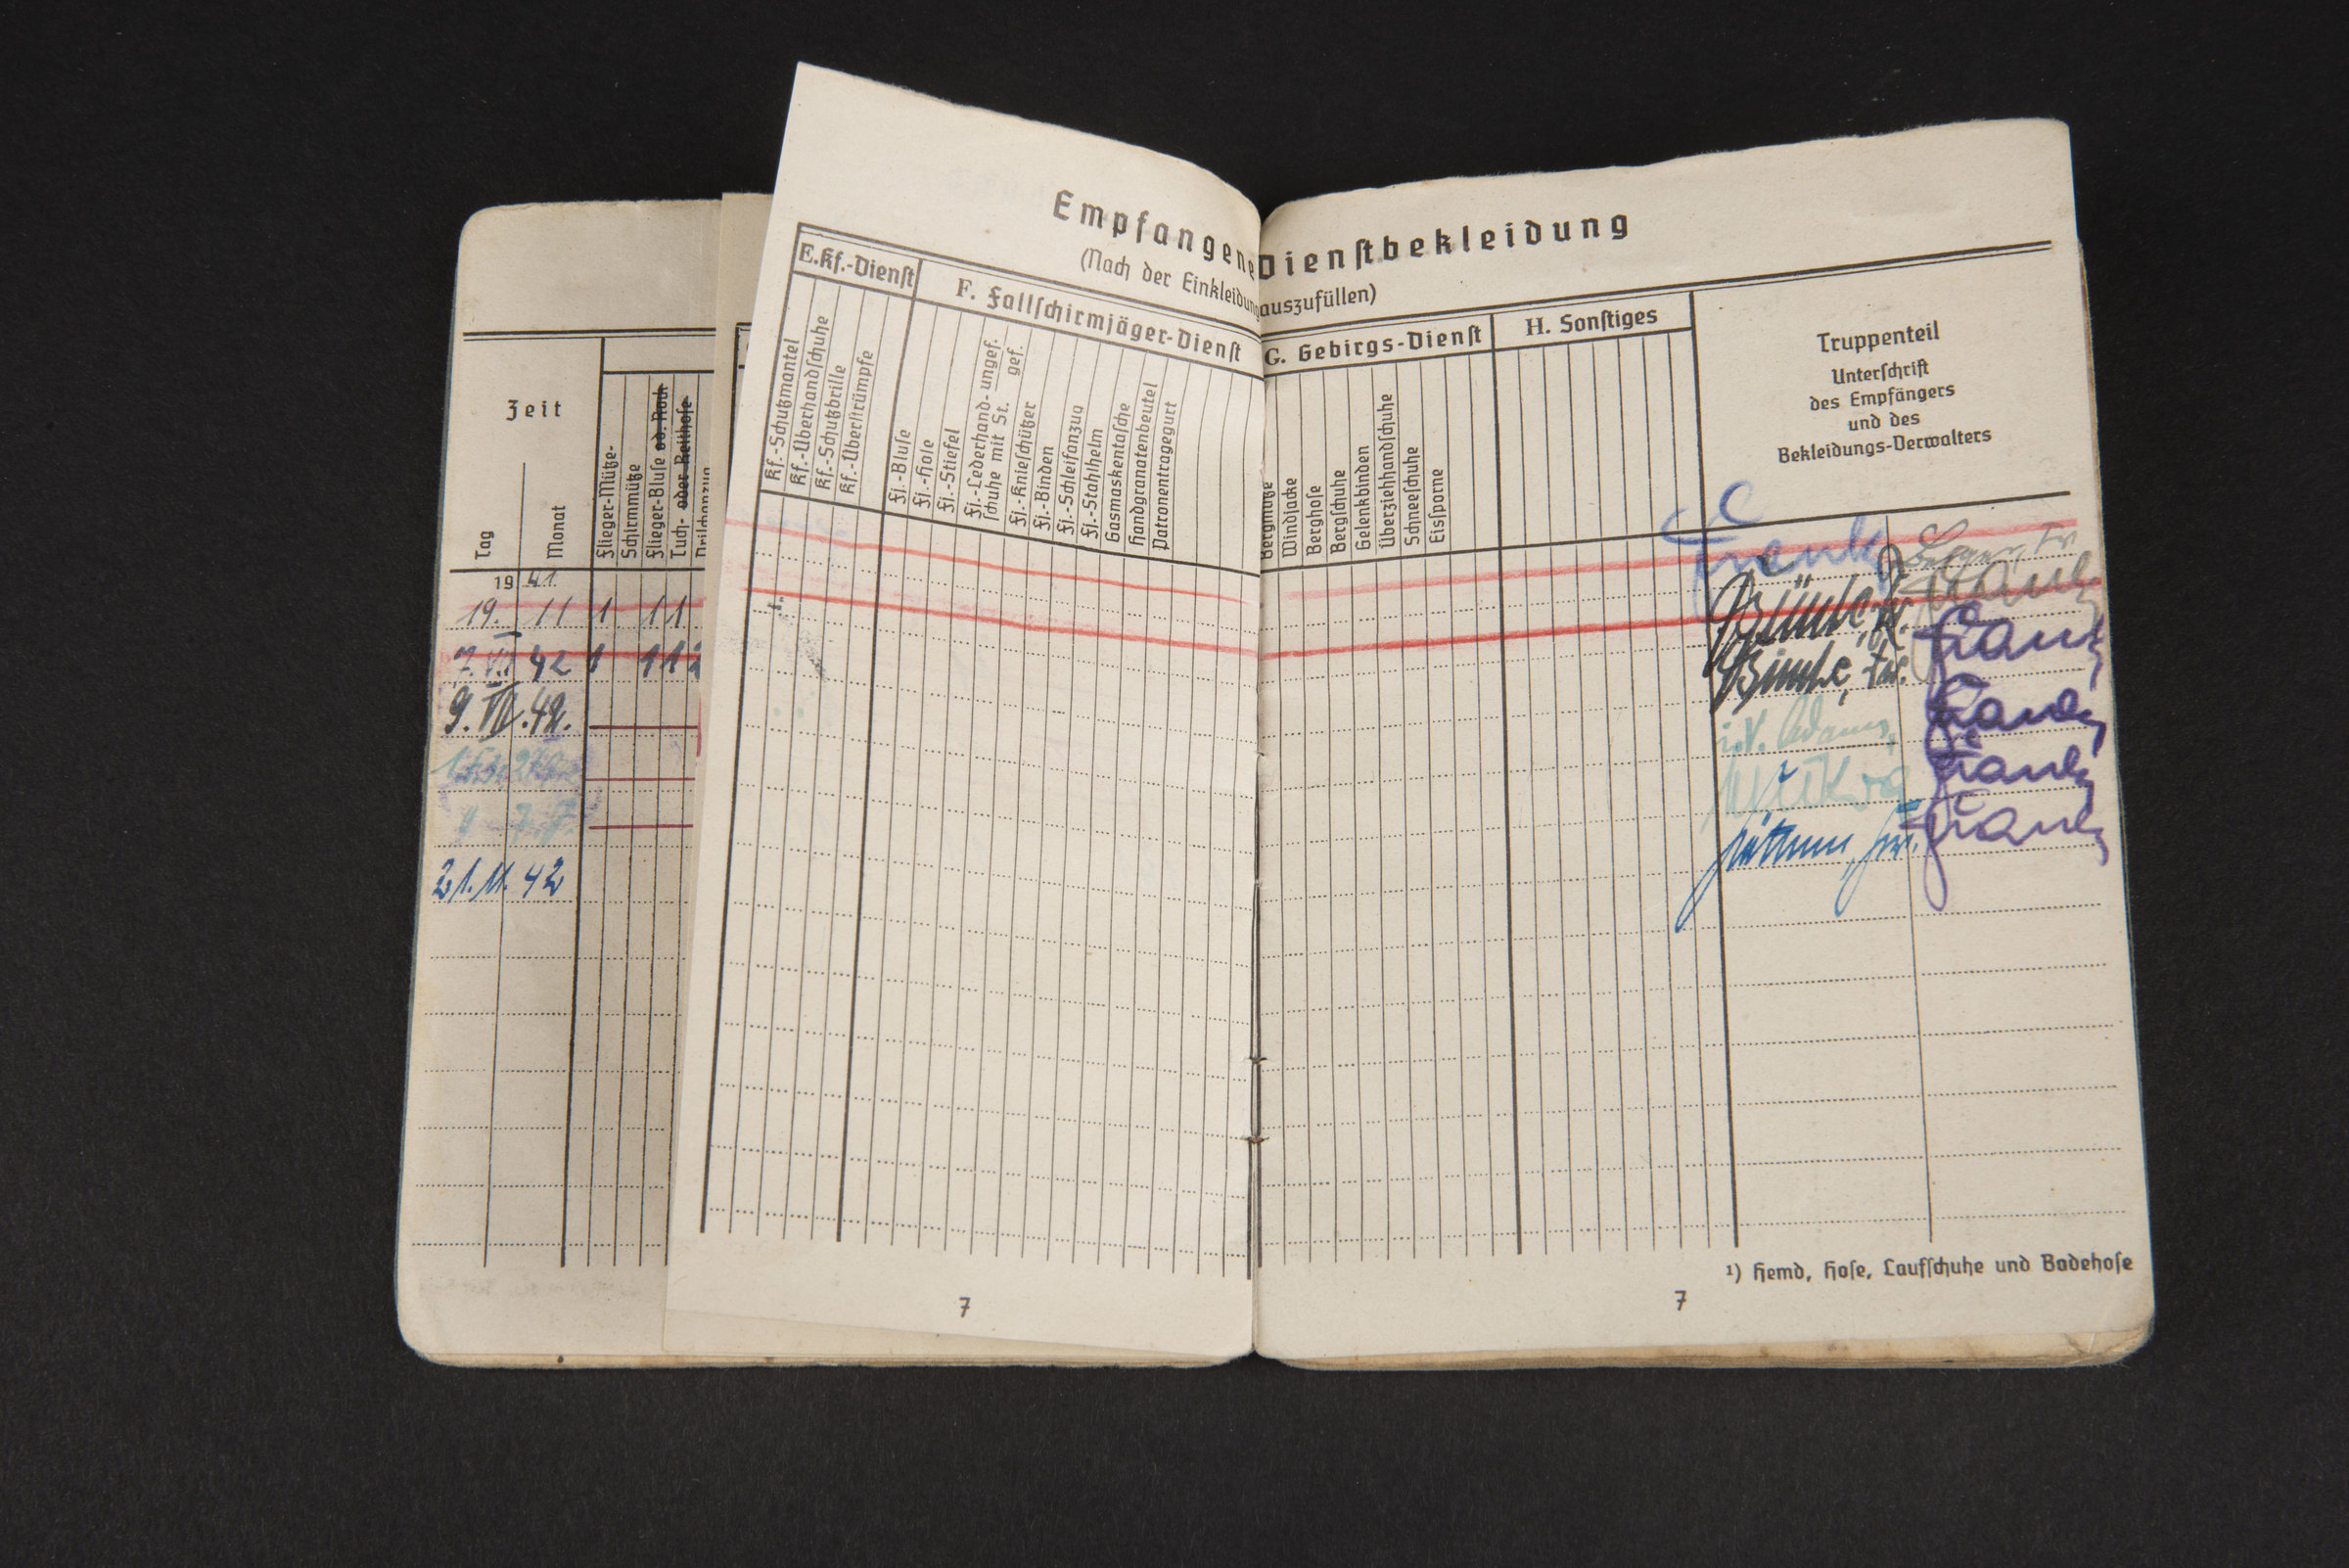 Empfangene Dienstbekleidung
(Nach der Einkleidung auszufüllen)
Zeit
Tag
Monat
Flieger-Mütze-
Schirmmütze
Flieger-Bluse od. Rock
Tuch- oder Reithose
Drillichanzug
E. Kf.-Dienst
Kf.-Schutzmantel
Kf.-Überhandschuhe
Kf.-Schutzbrille
Kf.-Überstrümpfe
F. Fallschirmjäger-Dienst
Fj.-Bluse
Fj.-Hose
Fj.-Stiefel
Fj.-Lederhand- ungef.
schuhe mit St. gef.
Fj.-Knieschützer
Fj.-Binden
Fj.-Schleifanzug
Fj.-Stahlhelm
Gasmaskentasche
Handgranatenbeutel
Patronentragegurt
G. Gebirgs-Dienst
Bergmütze
Windjacke
Berghose
Bergschuhe
Gelenkbinden
Überziehhandschuhe
Schneeschuhe
Eissporne
H. Sonstiges
Truppenteil
Unterschrift
des Empfängers
und des
Bekleidungs-Verwalters
19 41
19. 11 1 1 1
7. VII 42 1 1 1 2
9. VII. 42.
21. 11. 42
Frank
Frank
Frank
i.V. Adams
Frank
Frank
Frank
¹) Hemd, Hose, Laufschuhe und Badehose
7
7